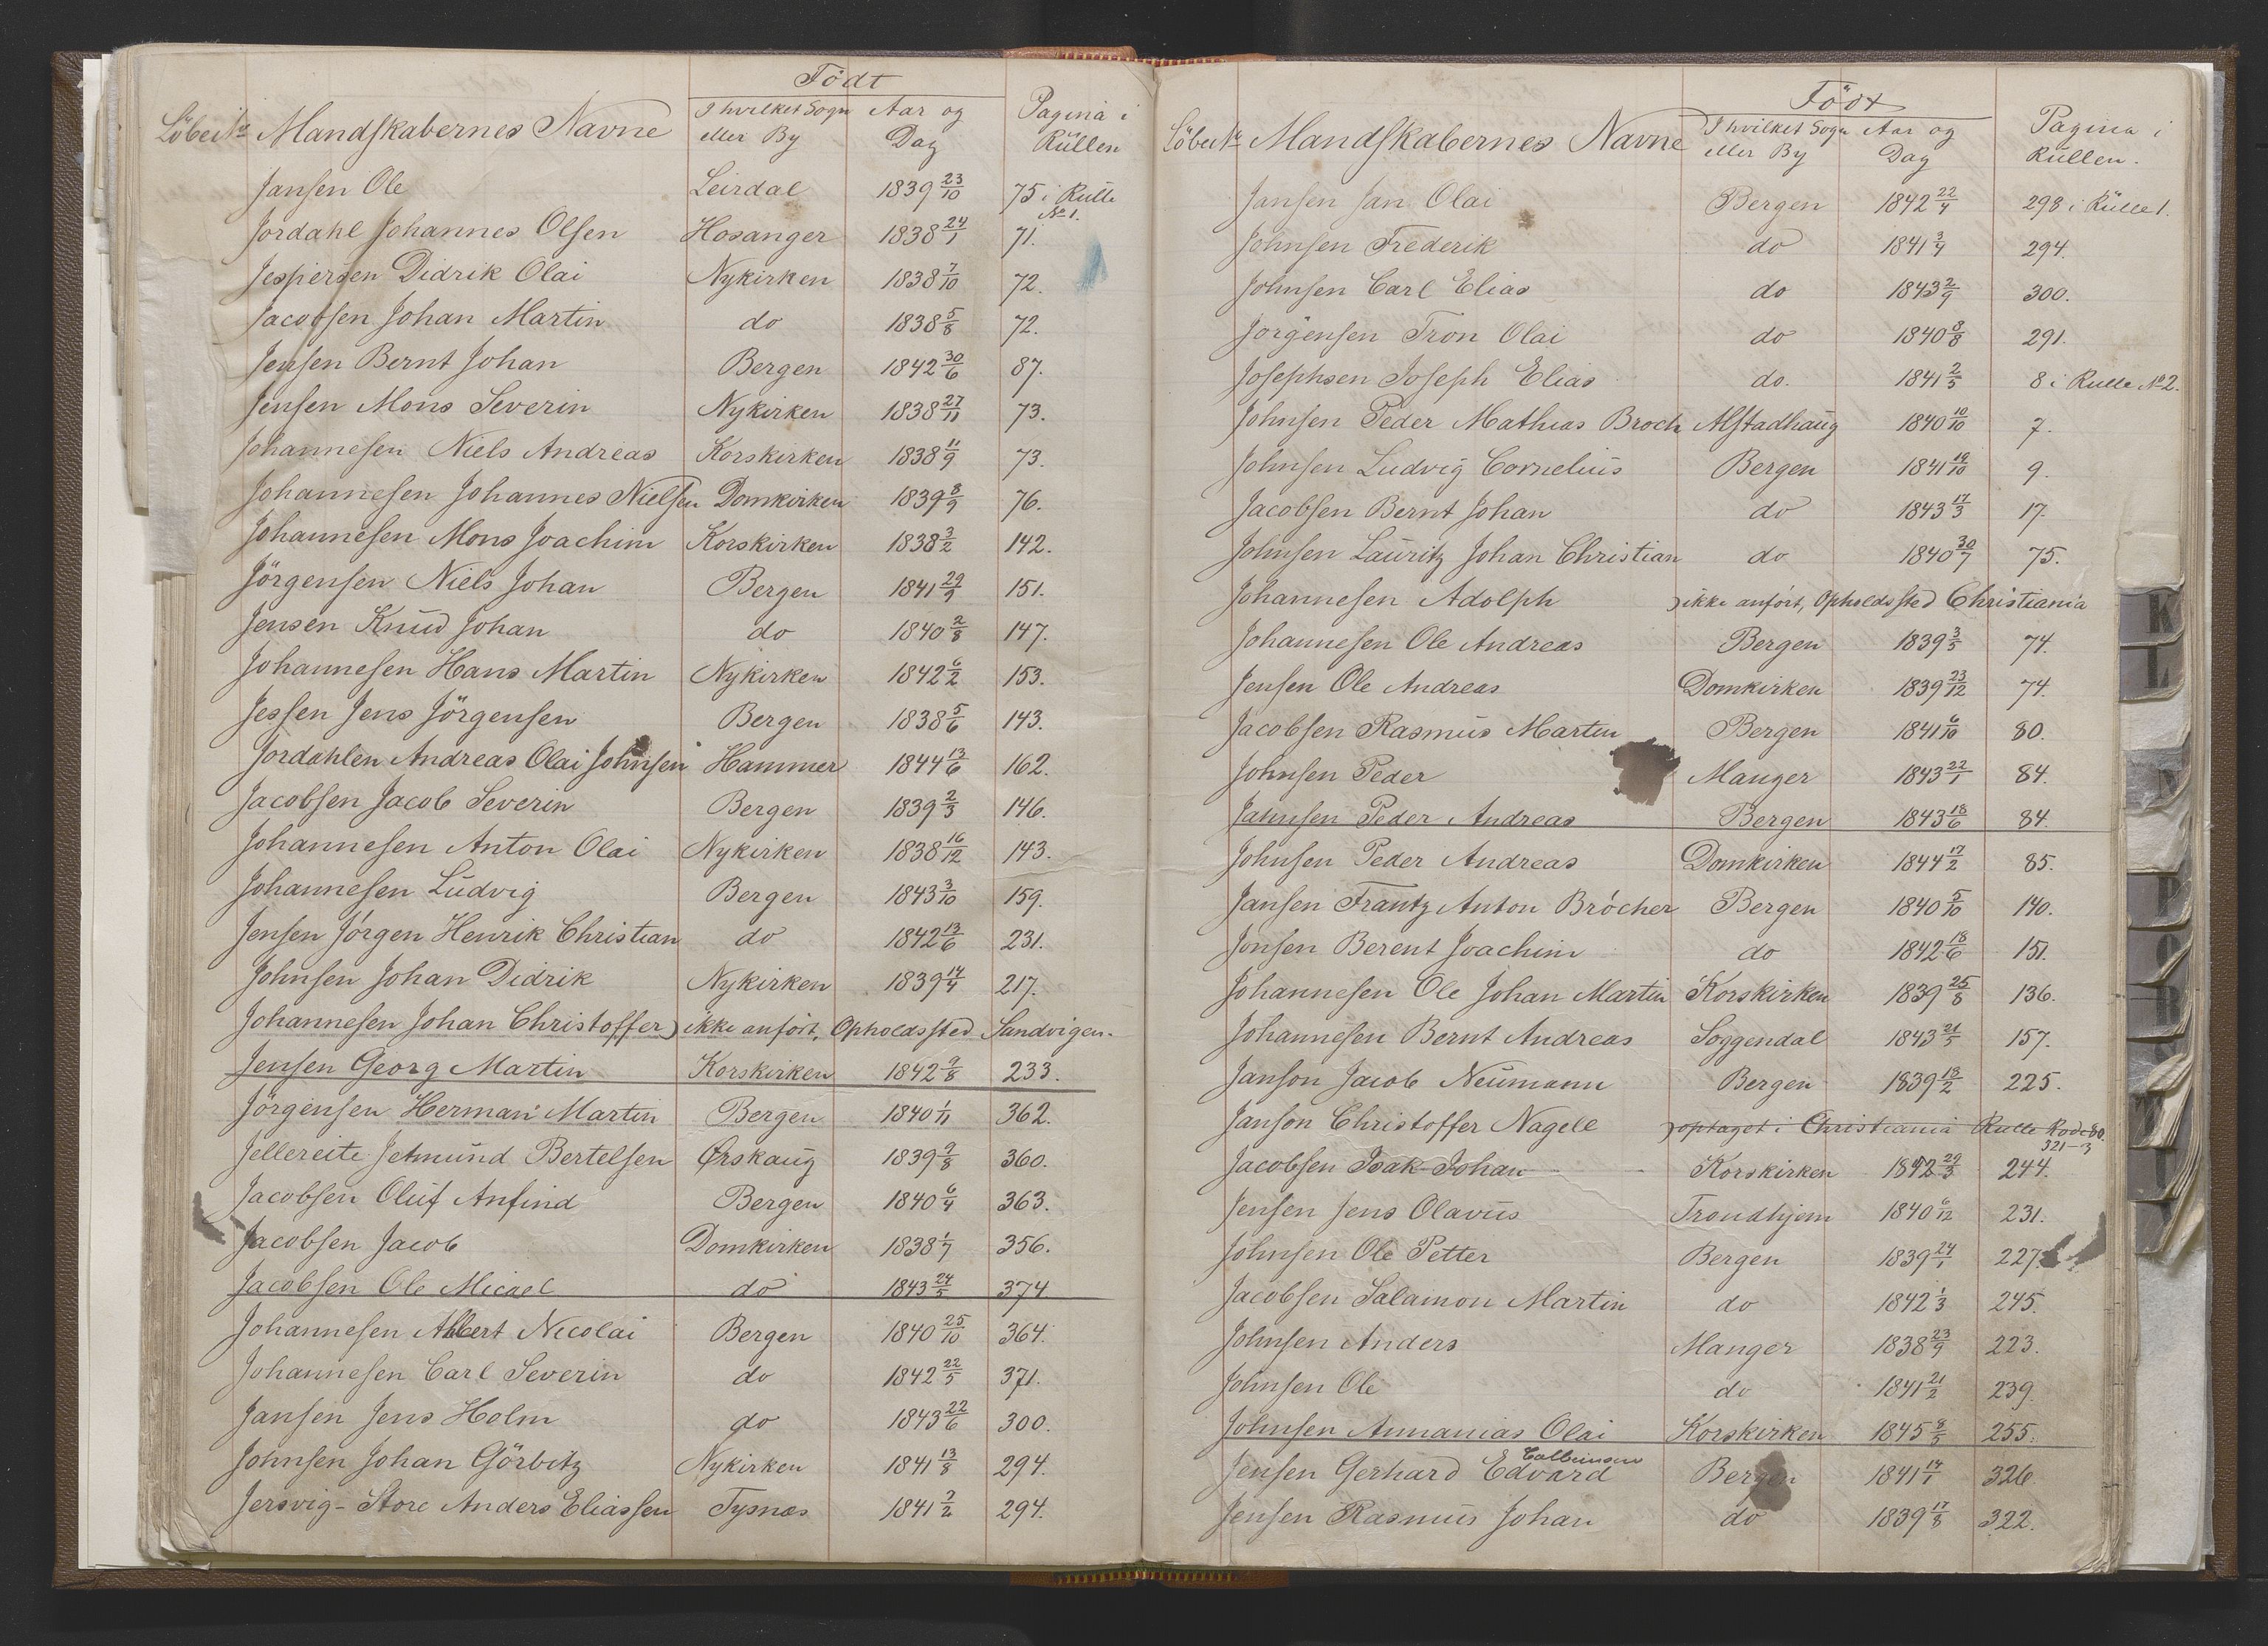 Födt
Löbe No Mandskabernes Navne I hvilket Sogn eller By Aar og Dag Pagina i Rüllen
Jansen Ole Leirdal 1839 23/10 75 i Rulle No 1.
Jordahl Johannes Olsen Hosanger 1838 24/1 71.
Jespersen Didrik Olai Nykirken 1838 7/10 72.
Jacobsen Johan Martin do 1838 5/8 72.
Jensen Bernt Johan Bergen 1842 30/6 87.
Jensen Mons Severin Nykirken 1838 27/11 73.
Johannesen Niels Andreas Korskirken 1838 11/9 73.
Johannesen Johannes Nielsen Domkirken 1839 8/9 76.
Johannesen Mons Joachim Korskirken 1838 3/2 142.
Jörgensen Niels Johan Bergen 1841 29/9 151.
Jensen Knud Johan do 1840 2/8 147.
Johannesen Hans Martin Nykirken 1842 6/2 153.
Jessen Jens Jörgensen Bergen 1838 5/6 143.
Jordahlen Andreas Olai Johnsen Hammer 1844 13/6 162.
Jacobsen Jacob Severin Bergen 1839 2/3 146.
Johannesen Anton Olai Nykirken 1838 16/12 143.
Johannesen Ludvig Bergen 1843 3/10 159.
Jensen Jörgen Henrik Christian do 1842 13/6 231.
Johnsen Johan Didrik Nykirken 1839 14/4 217.
Johannesen Johan Christoffer) ikke anfört, Opholdssted Sandvigen.
Jensen Georg Martin Korskirken 1842 9/8 233.
Jörgensen Herman Martin Bergen 1840 1/11 362.
Jellereite Jetmund Bertelsen Ørskaug 1839 9/8 360.
Jacobsen Oluf Anfind Bergen 1840 6/4 363.
Jacobsen Jacob Domkirken 1838 1/7 356.
Jacobsen Ole Micael do 1843 24/5 374
Johannesen Albert Nicolai Bergen 1840 25/10 364.
Johannesen Carl Severin do 1842 22/5 371.
Jansen Jens Holm do 1843 22/6 300.
Johnsen Johan Görbitz Nykirken 1841 13/8 294.
Jersvig-Store Anders Eliassen Tysnæs 1841 7/2 294.
Födt
Löbe No Mandskabernes Navne I hvilket Sogn eller By Aar og Dag Pagina i Rüllen.
Jansen Jan Olai Bergen 1842 22/4 298 i Rülle 1.
Johnsen Frederik do 1841 3/4 294.
Johnsen Carl Elias do 1843 2/9 300.
Jörgensen Tron Olai do 1840 8/8 291.
Josephsen Joseph Elias do. 1841 2/5 8 i Rulle No 2.
Johnsen Peder Mathias Broch Alstadhaug 1840 10/10 7.
Johnsen Ludvig Cornelius Bergen 1841 19/10 9.
Jacobsen Bernt Johan do 1843 17/3 17.
Johnsen Lauritz Johan Christian do 1840 30/7 75.
Johannesen Adolph ) ikke anfört, Opholdssted Christiania
Johannesen Ole Andreas Bergen 1839 3/5 74.
Jensen Ole Andreas Domkirken 1839 23/12 74.
Jacobsen Rasmus Martin Bergen 1841 6/10 80.
Johnsen Peder Manger 1843 22/1 84.
Johnsen Peder Andreas Bergen 1843 18/6 84.
Johnsen Peder Andreas Domkirken 1844 17/2 85.
Jansen Frantz Anton Bröcher Bergen 1840 5/10 140.
Jonsen Berent Joachim do 1842 18/6 151.
Johannesen Ole Johan Martin Korskirken 1839 25/8 136.
Johannesen Bernt Andreas Soggendal 1843 21/5 157.
Janson Jacob Neumann Bergen 1839 13/2 225.
Janson Christoffer Nagell ) optaget i Christiania Rulle Rode 80. 321-3
Jacobsen Isak Johan Korskirken 1842 29/3 244.
Jensen Jens Olavus Trondhjem 1840 6/12 231.
Johnsen Ole Petter Bergen 1839 24/1 227.
Jacobsen Salamon Martin do 1842 1/3 245.
Johnsen Anders Manger 1838 23/9 223.
Johnsen Ole do 1841 21/2 239.
Johnsen Annanias Olai Korskirken 1845 8/5 255.
Jensen Gerhard Edvard Bergen 1841 14/1 326.
Jensen Rasmus Johan do 1839 17/8 322.
K
L
N
P
R
T